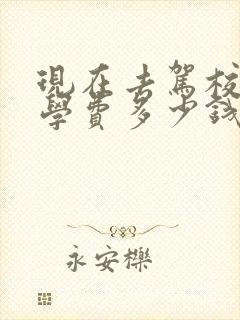 現在去駕校
學費多少錢
永安櫟